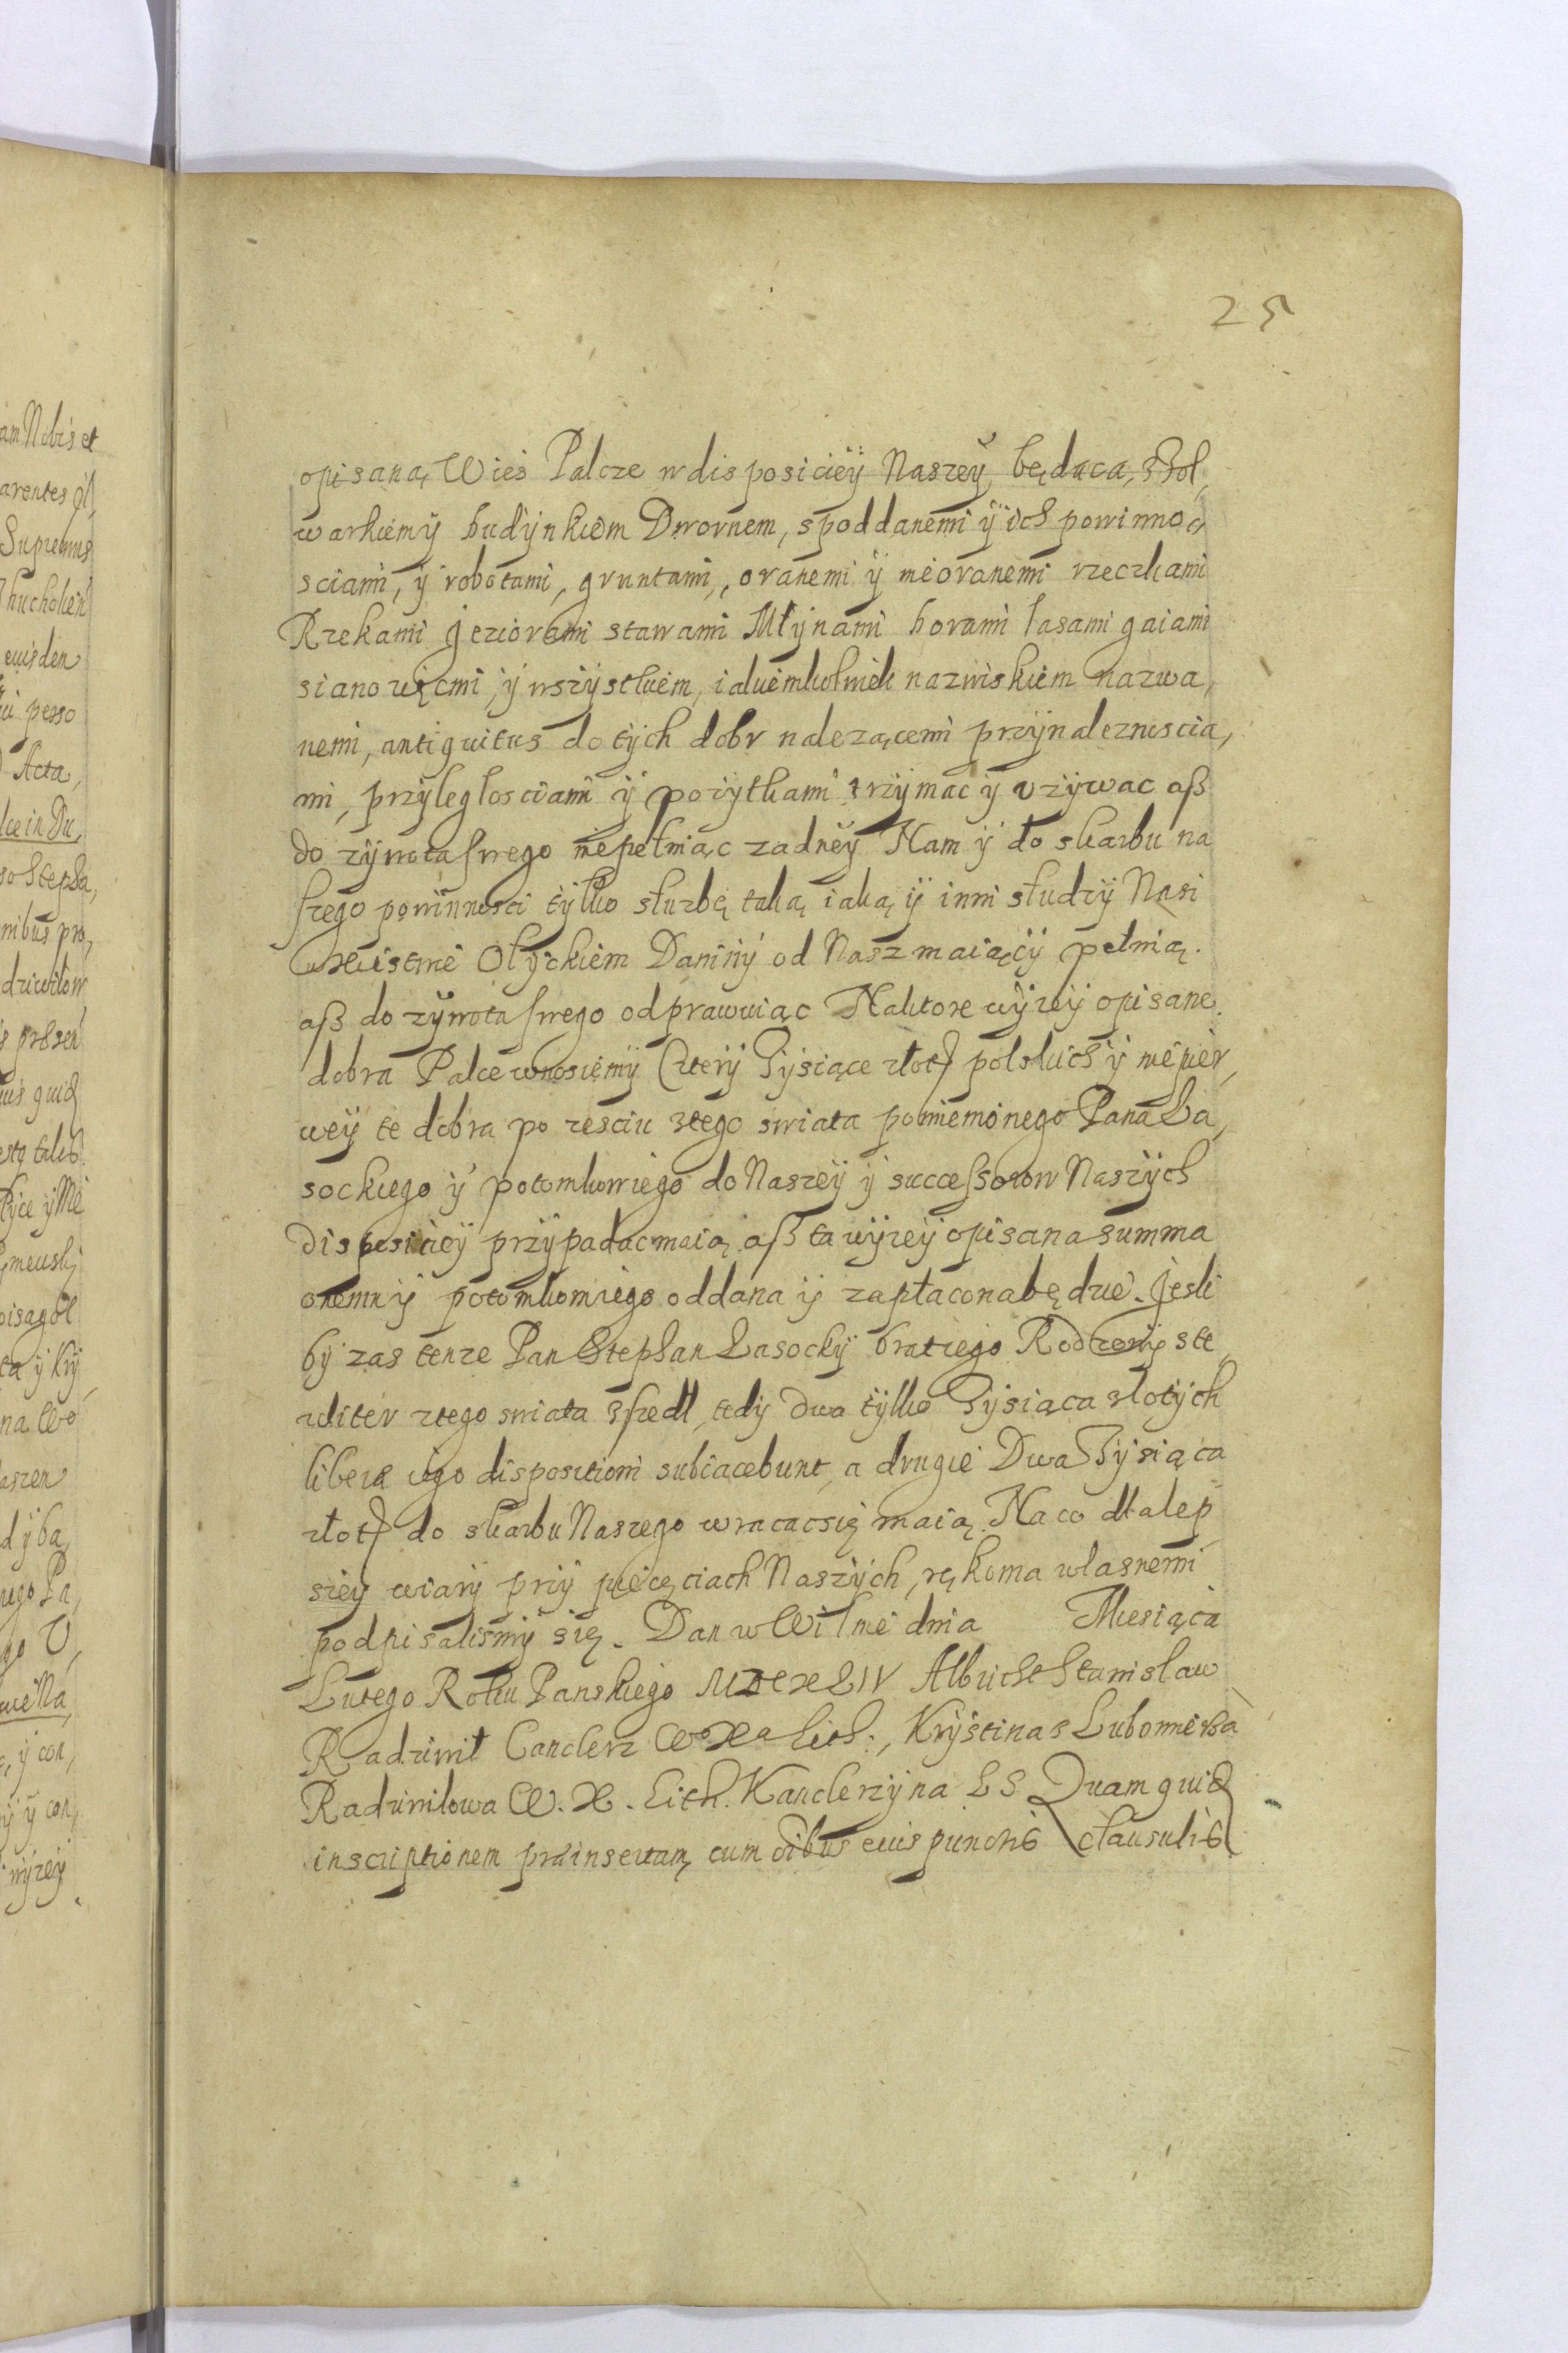 25
opisaną Wies Palcze w disposiciey Naszey będącą, s Fol,
warkiem y budynkiem Dwornem, s poddanemi y ich powinno,
sciami, y robotami, gruntami, oranemi y nieoranemi rzeczkami
Rzekami Jeziorami stawami Młynami borami lasami gaiami
sianozęcmi, y wszystkiem, iakiemkolwiek nazwiskiem nazwa,
nemi, antiquitus do tych dobr nalezącemi przynaleznoscia,
mi, przyległosciami y pozytkami trzymac y vzywac asz
do zywota swego niepełniąc zadney Nam y do skarbu na
szego powinnosci tylko słuzbę taką iaką y inni słudzy Nasi
w Xięstwie Ołyckiem Daniny od Nasz maiący pełnią.
asz do zywota swego odprawuiąc Naktore wyzey opisane
dobra Palce wnosiemy Cztery Tysiące złotҿ polskich y niepier,
wey te dobra po zesciu ztego swiata pomiemionego Pana Ła,
sockiego y potomkowiego do Naszey y successorow Naszych
disposiciey przypadac maią asz ta wyzey opisana summa
onemu y potomkomiego oddana y zapłacona będzie. Jesli
by zas tenze Pan Stephan Łasocky brat iego Rodzony ste,
riliter ztego swiata sszedł, tedy dwa tylko Tysiąca złotych
libera iego dispositioni subiacebunt, a drugie Dwa Tysiąca
złotҿ do skarbu Naszego wracac się maią. Na co dla lep
szey wiary przy pieczęciach Naszych, rękoma własnemi
podpisalismy się. Dan w Wilnie dnia Miesiąca
Lutego Roku Panskiego MDCXLIV Albricht Stanisław
Radziwił Canclerz W X Lith., Krystina s Lubomirska
Radziwilowa W. X. Lith. Kanclerzyna LS Quam quid
inscriptionem præinsertam cum oibus eius punctis clausulis